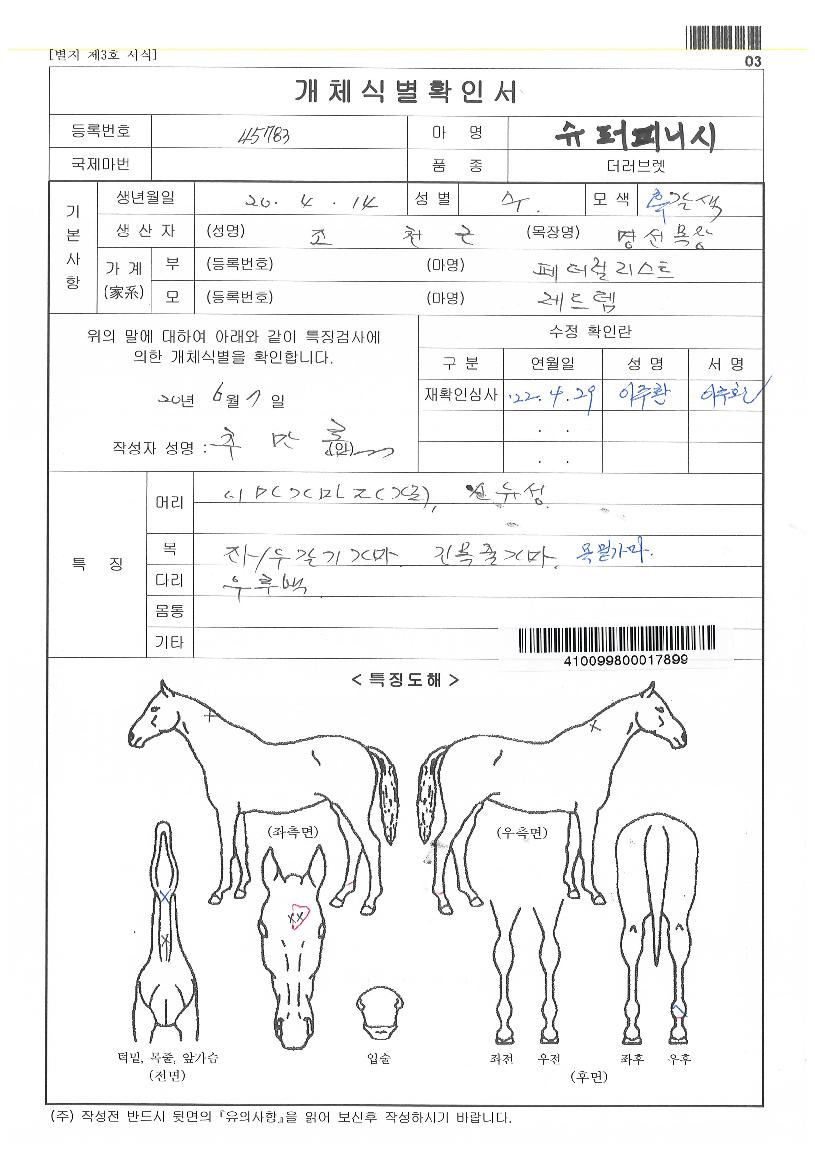 [별지 제3호 서식]
03
개체식별확인서
등록번호 45783 마 명 슈퍼피니시
국제마번 품 종 더러브렛
기본사항
생년월일 20. 4. 14 성 별 수. 모 색 흑갈색
생 산 자 (성명) 조 천 근 (목장명) 명선목장
가 계 (家系)
부 (등록번호) (마명) 페더럴리스트
모 (등록번호) (마명) 레드렘
위의 말에 대하여 아래와 같이 특징검사에
의한 개체식별을 확인합니다.
20년 6월 7일
작성자 성명 : 추 만 (인)
수정 확인란
구 분 연월일 성 명 서 명
재확인심사 '22. 4. 29 이주환 이주환
. .
. .
특 징
머리
목 좌/우갈기가마. 긴목줄가마. 목밑가마.
다리 우후백
몸통
기타
410099800017899
< 특징도해 >
(좌측면) (우측면)
턱밑, 목줄, 앞가슴
(전면)
입술
좌전 우전 좌후 우후
(후면)
(주) 작성전 반드시 뒷면의 『유의사항』을 읽어 보신후 작성하시기 바랍니다.